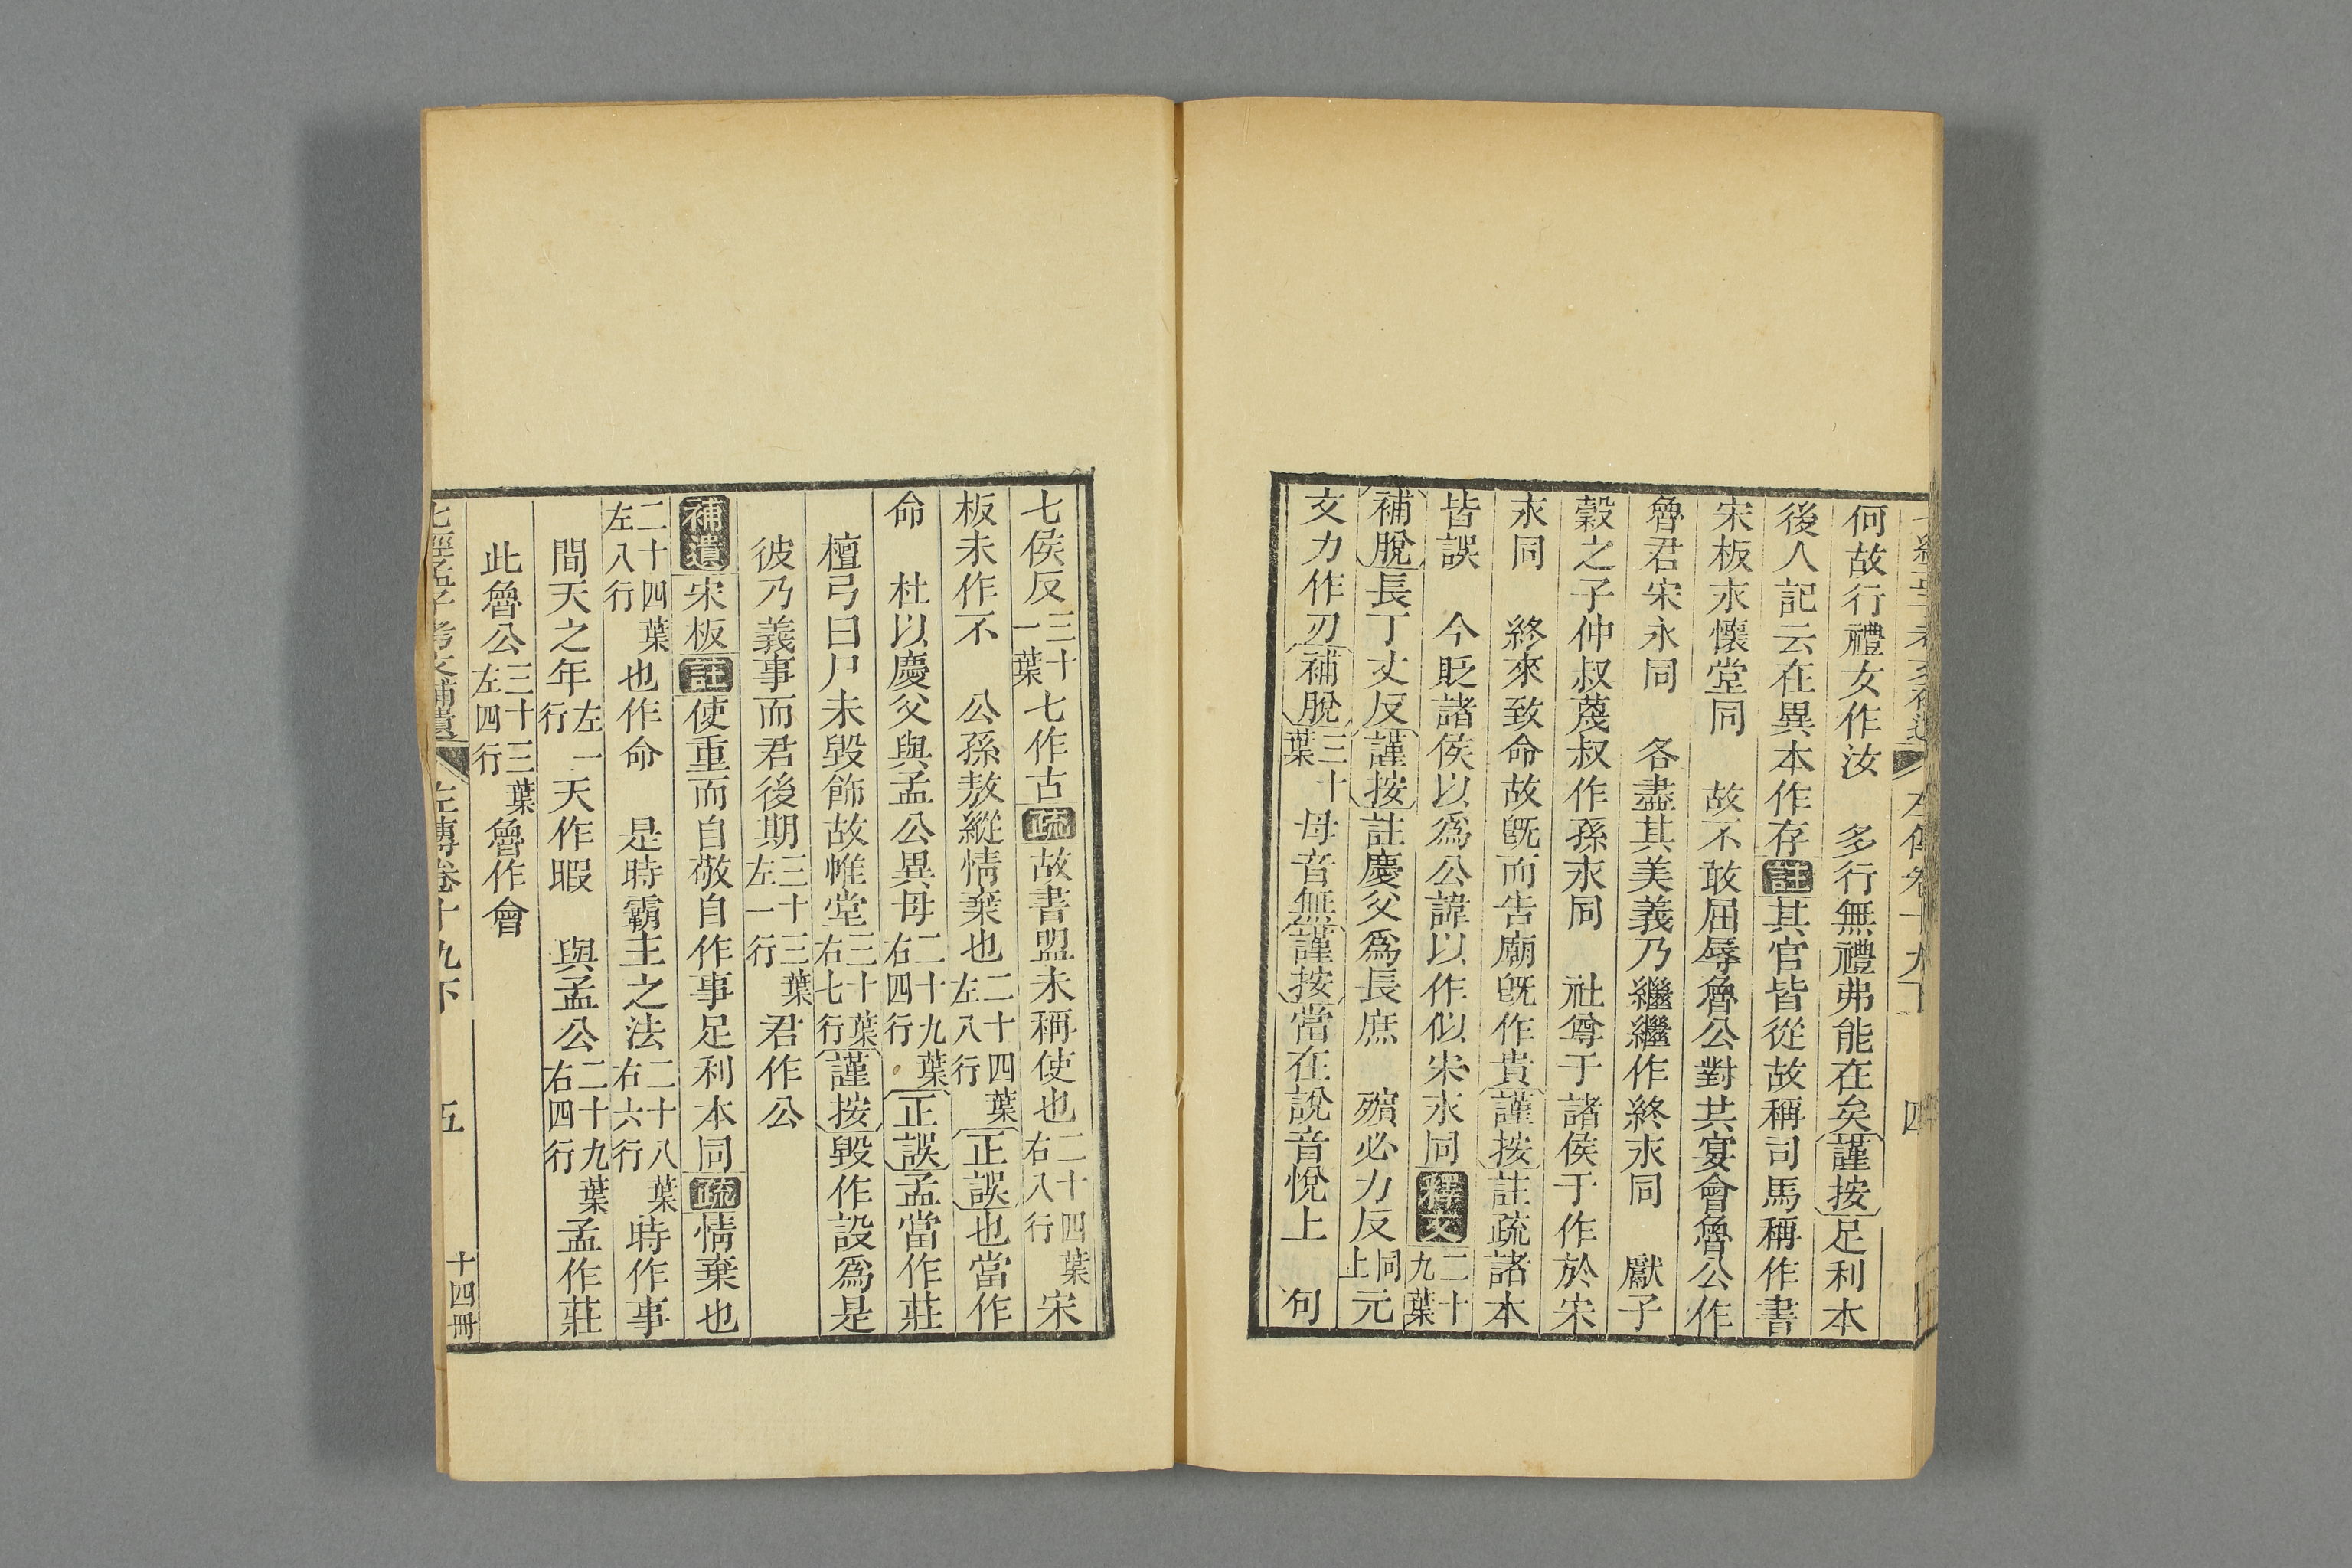 何故行禮女作汝　多行無禮弗能在矣謹按足利本
後人記云在異本作存註其官皆從故稱司馬稱作書
宋板永懷堂同　故不敢屈辱魯公對共宴會魯公作
魯君宋永同　各盡其美義乃繼繼作終永同　獻子
穀之子仲叔蔑叔作孫永同　社尊于諸侯于作於宋
永同　終來致命故旣而告廟旣作貴謹按註疏諸本
皆誤　今貶諸侯以爲公諱以作似宋永同釋文二十九葉
補脫長丁丈反謹按註慶父爲長庶　殯必力反同上元
文力作刃補脫三十葉母音無謹按當在說音悅上　句
七侯反三十一葉七作古疏故書盟未稱使也二十四葉右八行宋
板未作不　公孫敖縱情棄也二十四葉左八行正誤也當作
命　杜以慶父與孟公異母二十九葉右四行正誤孟當作莊
檀弓曰尸未毀飾故帷堂三十葉右七行謹按毀作設爲是
彼乃義事而君後期三十三葉左一行君作公
補遺宋板註使重而自敬自作事足利本同疏情棄也
二十四葉左八行也作命　是時霸主之法二十八葉右六行時作事
間天之年左一行天作暇　與孟公二十九葉右四行孟作莊
此魯公三十三葉左四行魯作會
七經孟子考文補遺　左傳卷十九下　五　十四冊